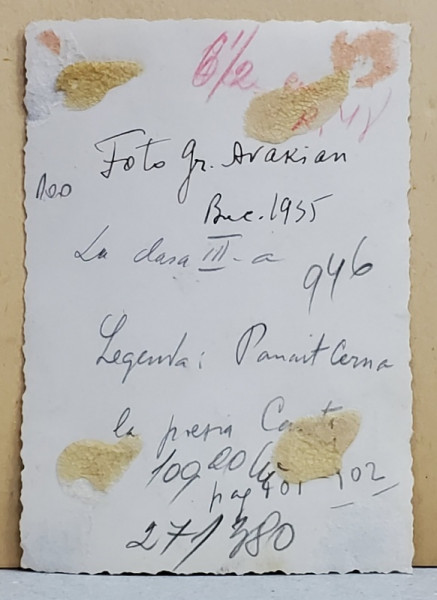 6 1/2
Foto Gr. Avakian
100
Buc. 1955
La clasa III-a
946
Legenda: Panait Cerna
la presa
109
pag 101-102
271/380